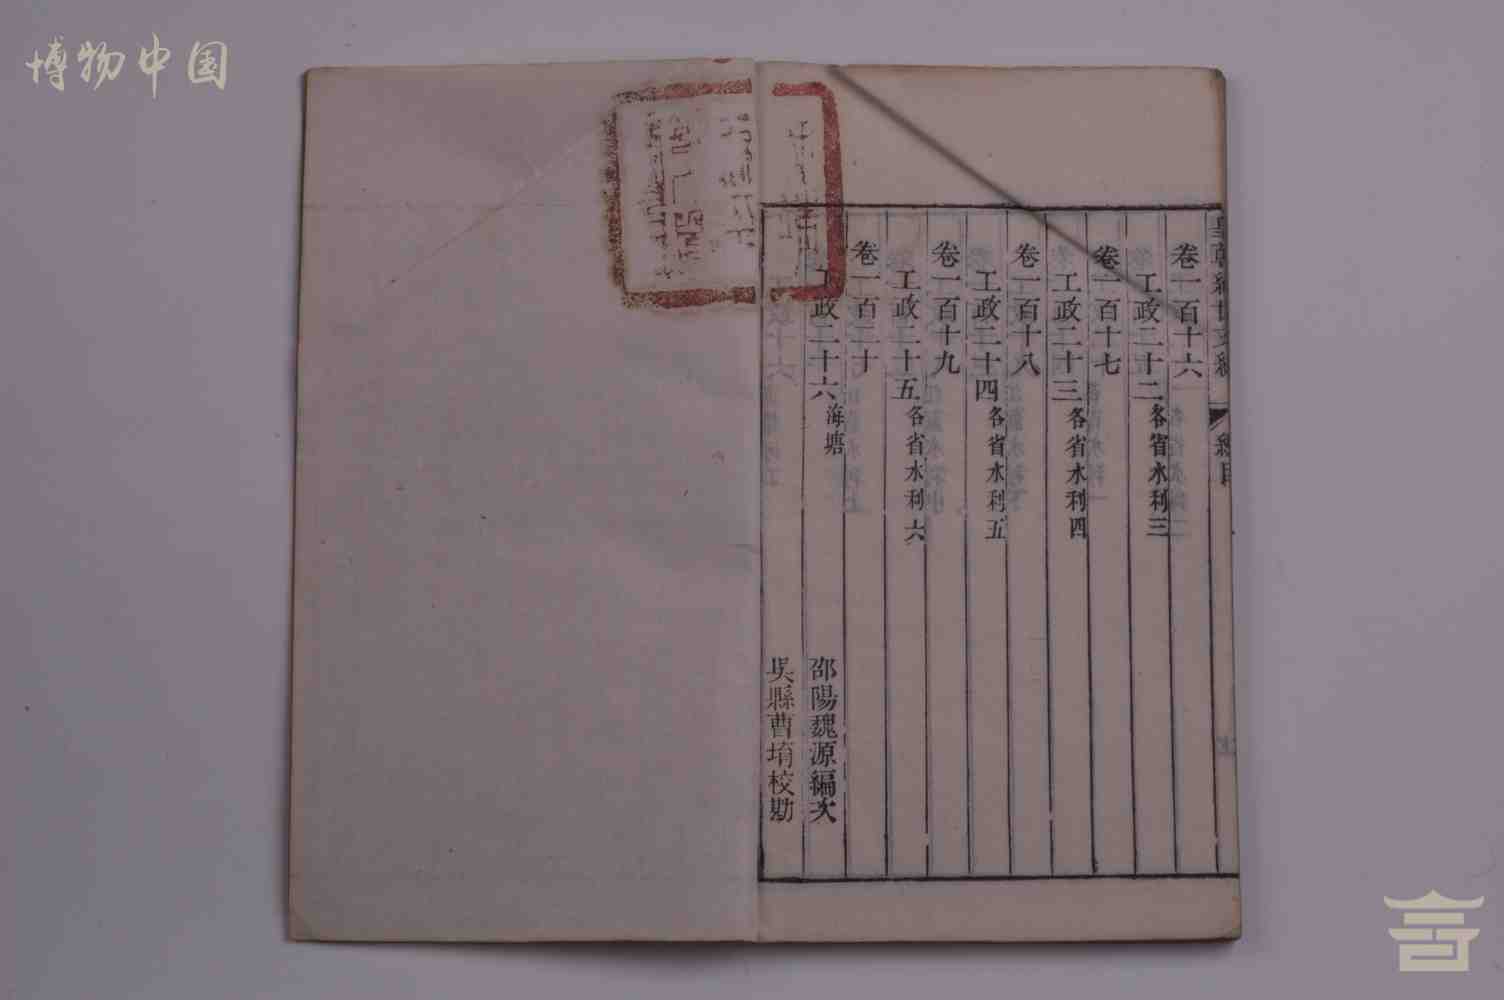 博物中国
皇朝經世文編 總目
卷一百十六
工政二十二各省水利三
卷一百十七
工政二十三各省水利四
卷一百十八
工政二十四各省水利五
卷一百十九
工政二十五各省水利六
卷一百二十
工政二十六海塘
邵陽魏源編次
吳縣曹堉校勘